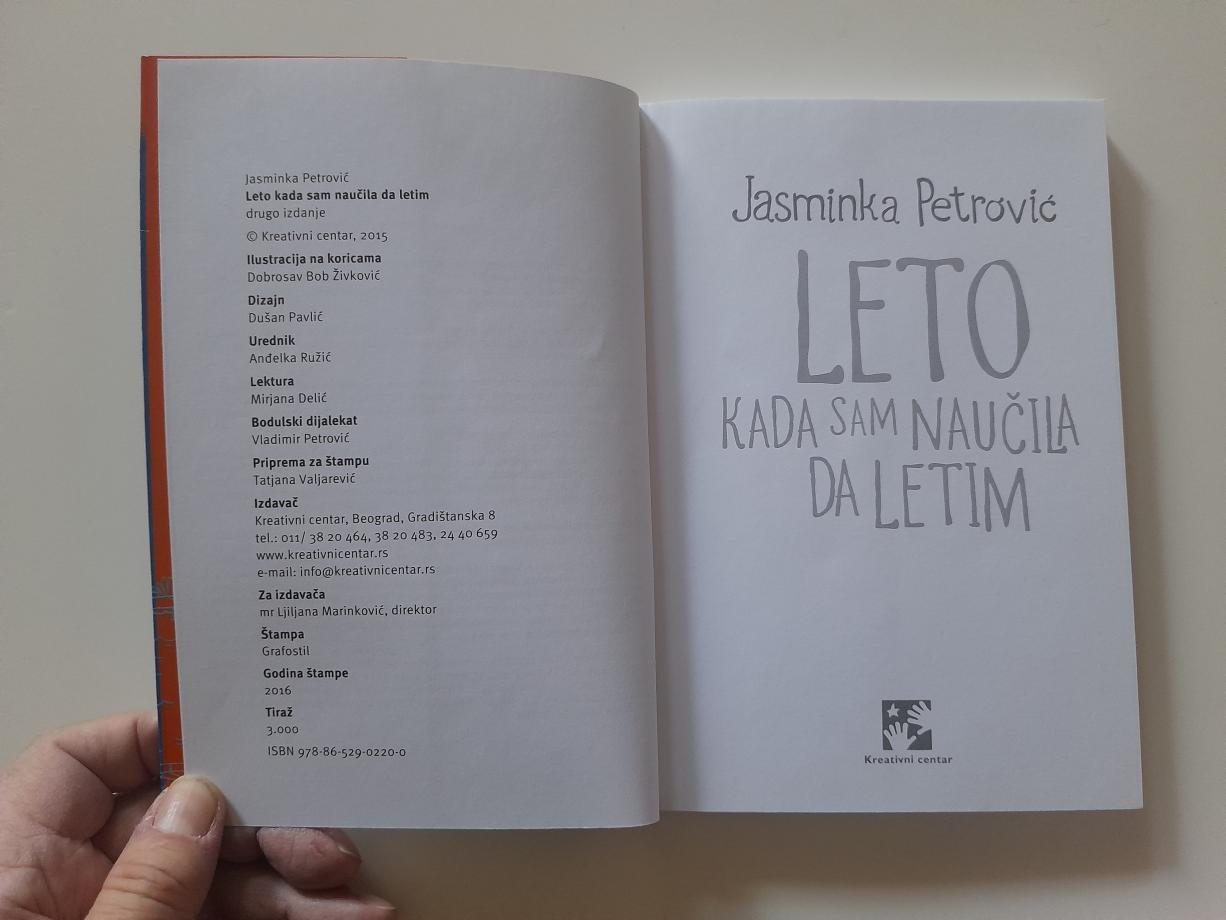 Jasminka Petrović
Leto kada sam naučila da letim
drugo izdanje
© Kreativni centar, 2015
Ilustracija na koricama
Dobrosav Bob Živković
Dizajn
Dušan Pavlić
Urednik
Anđelka Ružić
Lektura
Mirjana Delić
Bodulski dijalekat
Vladimir Petrović
Priprema za štampu
Tatjana Valjarević
Izdavač
Kreativni centar, Beograd, Gradištanska 8
tel.: 011/ 38 20 464, 38 20 483, 24 40 659
www.kreativnicentar.rs
e-mail: info@kreativnicentar.rs
Za izdavača
mr Ljiljana Marinković, direktor
Štampa
Grafostil
Godina štampe
2016
Tiraž
3.000
ISBN 978-86-529-0220-0
Jasminka Petrović
LETO
KADA SAM NAUČILA
DA LETIM
Kreativni centar